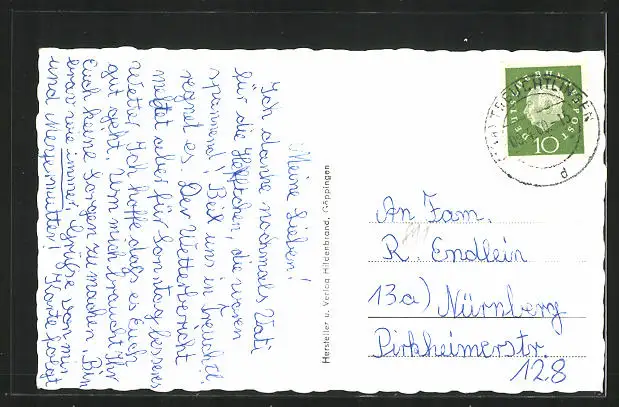 Meine Lieben!
Ich danke nochmals Vati
für die Heftchen, die waren
spannend! Bei uns in Treuchtl.
regnet es. Der Wetterbericht
meldet aber für Sonntag besseres
Wetter. Ich hoffe dass es Euch
gut geht. Um mich braucht Ihr
Euch keine Sorgen zu machen. Bin
brav wie immer! Grüße von mir
und Mersjmutter! Karte folgt
Hersteller u. Verlag Hildenbrand, Göppingen
DEUTSCHE BUNDESPOST
10
TREUCHTLINGEN
d
An Fam.
R. Endlein
13a) Nürnberg
Pirkheimerstr.
128